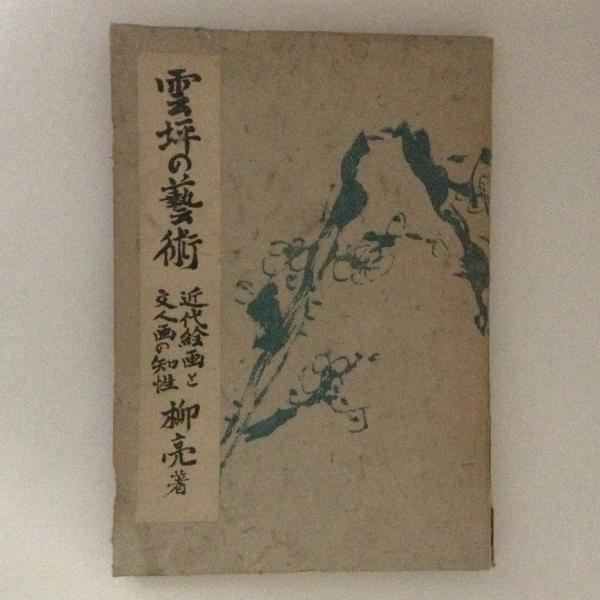 雲坪の藝術
近代絵画と
文人画の知性
柳亮著